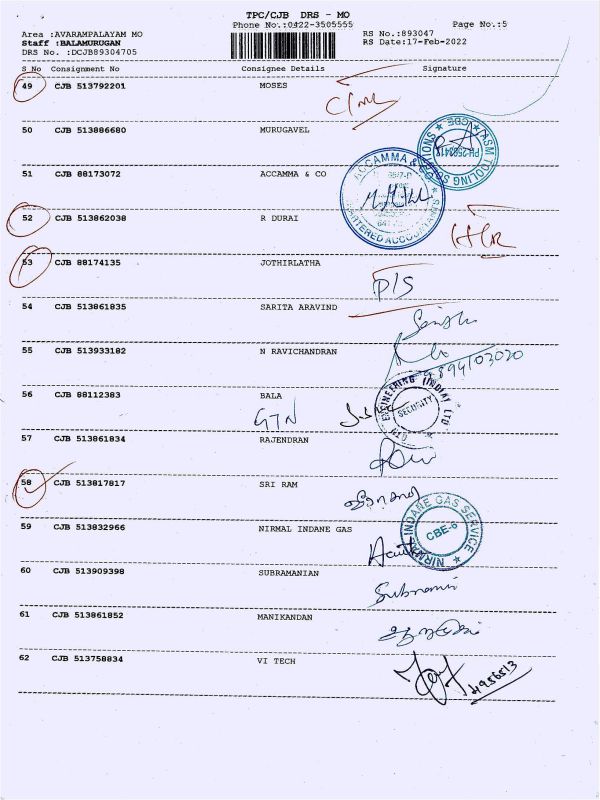 TPC/CJB DRS - MO
Phone No.:0422-3505555
Page No.:5
Area :AVARAMPALAYAM MO
RS No.:893047
Staff :BALAMURUGAN
RS Date:17-Feb-2022
DRS No. :DCJB89304705
S No Consignment No Consignee Details Signature
49 CJB 513792201 MOSES
50 CJB 513886680 MURUGAVEL
51 CJB 88173072 ACCAMMA & CO
52 CJB 513862038 R DURAI
53 CJB 88174135 JOTHIRLATHA
P/S
54 CJB 513861835 SARITA ARAVIND
55 CJB 513933182 N RAVICHANDRAN
56 CJB 88112383 BALA
GTN
ENGINEERING (INDIA) LTD
SECURITY
57 CJB 513861834 RAJENDRAN
58 CJB 513817817 SRI RAM
59 CJB 513832966 NIRMAL INDANE GAS
NIRMAL INDANE GAS SERVICE
CBE-6
60 CJB 513909398 SUBRAMANIAN
61 CJB 513861852 MANIKANDAN
62 CJB 513758834 VI TECH